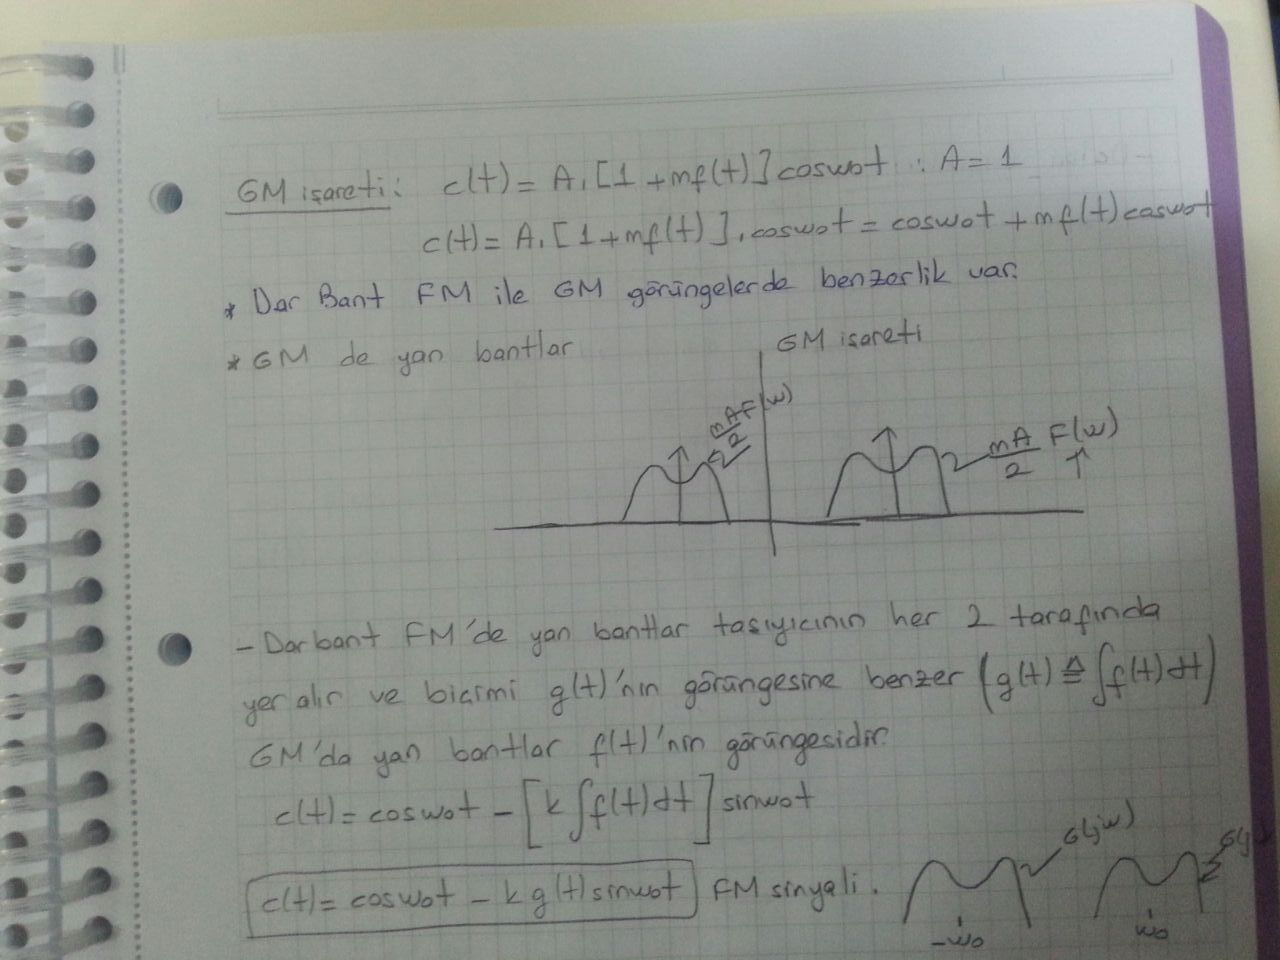 GM işareti: c(t) = A.[1 + mf(t)] cosw₀t : A = 1
c(t) = A.[1 + mf(t)].cosw₀t = cosw₀t + mf(t) cosw₀t
* Dar Bant FM ile GM görüngelerde benzerlik var.
* GM de yan bantlar
GM işareti
mA/2 F(w)
mA/2 F(w)
- Darbant FM'de yan bantlar taşıyıcının her 2 tarafında
yer alır ve biçimi g(t)'nin görüngesine benzer (g(t) ≜ ∫f(t)dt)
GM'da yan bantlar f(t)'nin görüngesidir.
c(t) = cosw₀t - [k ∫f(t)dt] sinw₀t
c(t) = cosw₀t - k g(t) sinw₀t FM sinyali.
G(jw)
G(j
-w₀
w₀